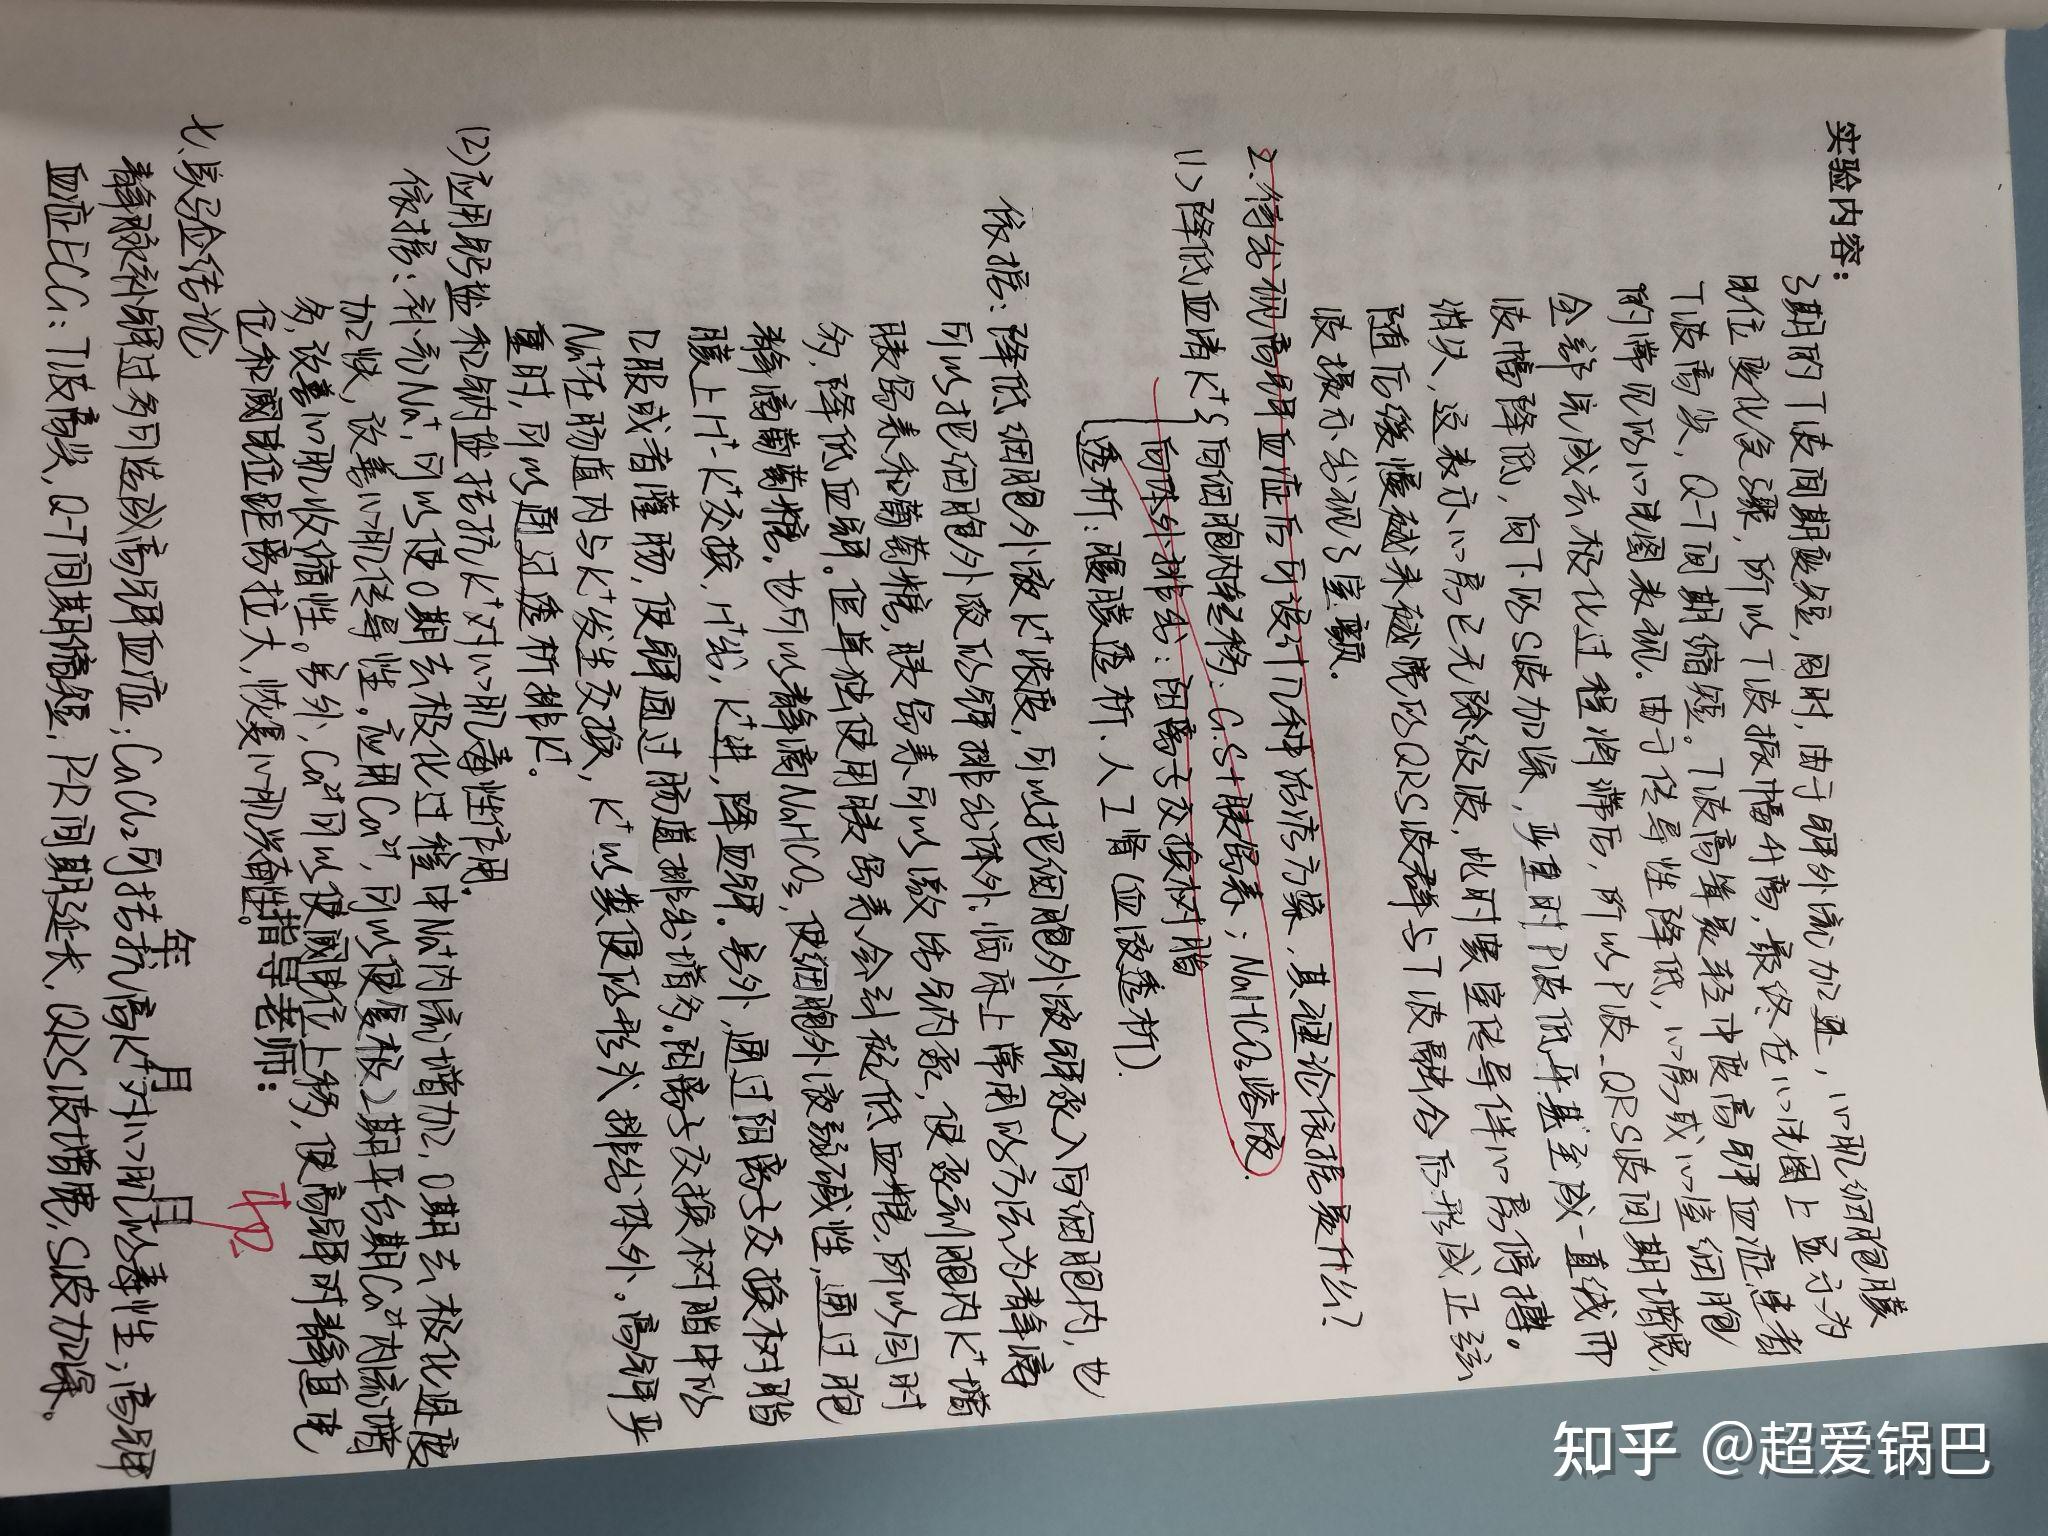 实验内容：
3期的T波间期变短，同时，由于钾外流加速，心肌细胞膜
电位变化急骤，所以T波振幅升高，最终在心电图上显示为
T波高尖，Q-T间期缩短。T波高耸是轻中度高钾血症患者
的常见的心电图表现。由于传导性降低，心房或心室细胞
全部完成去极化过程将滞后，所以P波、QRS波间期增宽，
波幅降低，向下的S波加深，严重时P波低平甚至成一直线而
消失，这表示心房已无除极波，此时窦室传导伴心房停搏。
随后缓慢越来越宽的QRS波群与T波融合后形成正弦
波提示出现了室颤。
2.待出现高钾血症后可设计几种治疗方案，其理论依据是什么？
(1)降低血清K⁺ 向细胞内转移：G.S+胰岛素；NaHCO₃溶液。
向体外排出：阳离子交换树脂
透析：腹膜透析、人工肾(血液透析)。
依据：降低细胞外液K⁺浓度，可以把细胞外液钾移入向细胞内，也
可以把细胞外液的钾排出体外。临床上常用的方法为静滴
胰岛素和葡萄糖，胰岛素可以激活钠内泵，使泵到胞内K⁺增
多，降低血钾。但单独使用胰岛素会引起低血糖，所以同时
静滴葡萄糖。也可以静滴NaHCO₃，使细胞外液弱碱性，通过胞
膜上H⁺-K⁺交换，H⁺出，K⁺进，降血钾。另外，通过阳离子交换树脂
口服或者灌肠，使钾通过肠道排出增多。阳离子交换树脂中的
Na⁺在肠道内与K⁺发生交换，K⁺以粪便的形式排出体外。高钾严
重时，可以通过透析排K⁺。
(2)应用钙盐和钠盐拮抗K⁺对心肌毒性作用。
依据：补充Na⁺，可以使0期去极化过程中Na⁺内流增加，0期去极化速度
加快，改善心肌传导性。应用Ca²⁺，可以使复极2期平台期Ca²⁺内流增
多，改善心肌收缩性。另外，Ca²⁺可以使阈电位上移，使高钾时静息电
位和阈电位距离拉大，恢复心肌兴奋性。
指导老师：
年 月 日
七、实验结论
静脉补钾过多可造成高钾血症；CaCl₂可拮抗高K⁺对心肌的毒性；高钾
血症ECG：T波高尖，Q-T间期缩短，P-R间期延长，QRS波增宽，S波加深。
知乎 @超爱锅巴